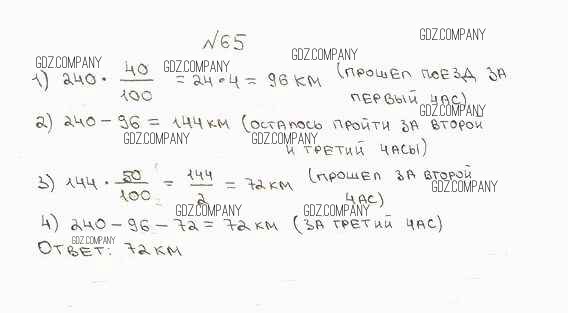 №65
GDZ.COMPANY
GDZ.COMPANY
GDZ.COMPANY GDZ.COMPANY
1) 240 · 40/100 = 24·4 = 96 км (прошел поезд за
первый час)
GDZ.COMPANY
2) 240 – 96 = 144 км (осталось пройти за второй
GDZ.COMPANY GDZ.COMPANY
и третий часы)
3) 144 · 50/100 = 144/2 = 72 км (прошел за второй
GDZ.COMPANY
час)
GDZ.COMPANY GDZ.COMPANY
4) 240 – 96 – 72 = 72 км (за третий час)
GDZ.COMPANY
Ответ: 72 км